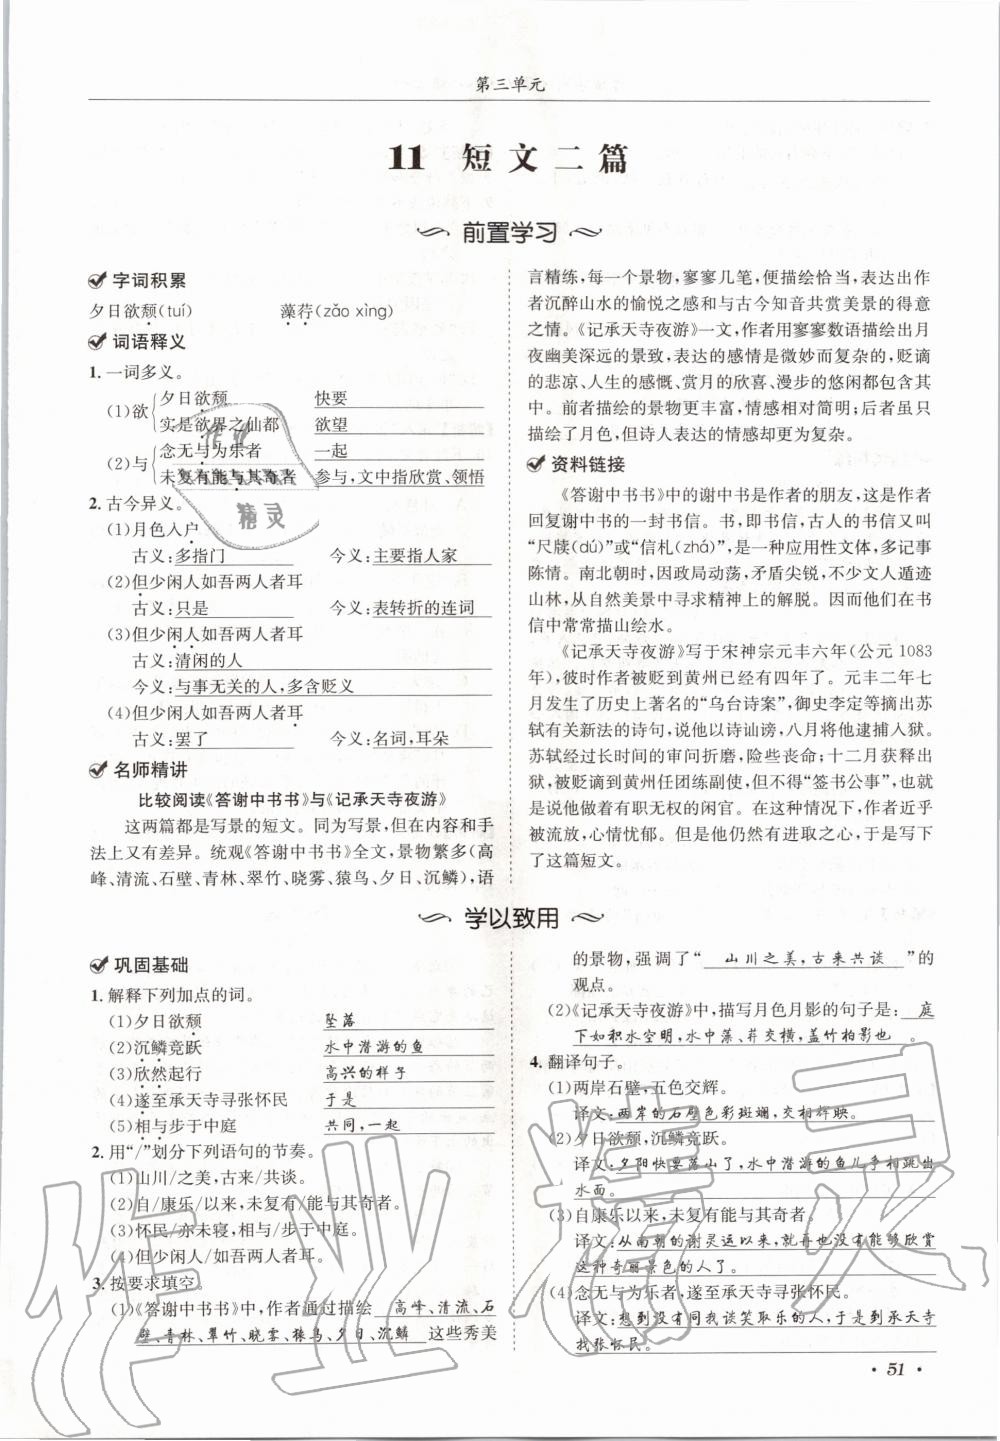 第三单元
11 短文二篇
前置学习
字词积累
夕日欲颓(tuí) 藻荇(zǎo xìng)
词语释义
1. 一词多义。
(1)欲
夕日欲颓 快要
实是欲界之仙都 欲望
(2)与
念无与为乐者 一起
未复有能与其奇者 参与,文中指欣赏、领悟
2. 古今异义。
(1)月色入户
古义:多指门 今义:主要指人家
(2)但少闲人如吾两人者耳
古义:只是 今义:表转折的连词
(3)但少闲人如吾两人者耳
古义:清闲的人
今义:与事无关的人,多含贬义
(4)但少闲人如吾两人者耳
古义:罢了 今义:名词,耳朵
名师精讲
比较阅读《答谢中书书》与《记承天寺夜游》
这两篇都是写景的短文。同为写景,但在内容和手
法上又有差异。统观《答谢中书书》全文,景物繁多(高
峰、清流、石壁、青林、翠竹、晓雾、猿鸟、夕日、沉鳞),语
言精练,每一个景物,寥寥几笔,便描绘恰当,表达出作
者沉醉山水的愉悦之感和与古今知音共赏美景的得意
之情。《记承天寺夜游》一文,作者用寥寥数语描绘出月
夜幽美深远的景致,表达的感情是微妙而复杂的,贬谪
的悲凉、人生的感慨、赏月的欣喜、漫步的悠闲都包含其
中。前者描绘的景物更丰富,情感相对简明;后者虽只
描绘了月色,但诗人表达的情感却更为复杂。
资料链接
《答谢中书书》中的谢中书是作者的朋友,这是作者
回复谢中书的一封书信。书,即书信,古人的书信又叫
“尺牍(dú)”或“信札(zhá)”,是一种应用性文体,多记事
陈情。南北朝时,因政局动荡,矛盾尖锐,不少文人遁迹
山林,从自然美景中寻求精神上的解脱。因而他们在书
信中常常描山绘水。
《记承天寺夜游》写于宋神宗元丰六年(公元 1083
年),彼时作者被贬到黄州已经有四年了。元丰二年七
月发生了历史上著名的“乌台诗案”,御史李定等摘出苏
轼有关新法的诗句,说他以诗讪谤,八月将他逮捕入狱。
苏轼经过长时间的审问折磨,险些丧命;十二月获释出
狱,被贬谪到黄州任团练副使,但不得“签书公事”,也就
是说他做着有职无权的闲官。在这种情况下,作者近乎
被流放,心情忧郁。但是他仍然有进取之心,于是写下
了这篇短文。
学以致用
巩固基础
1. 解释下列加点的词。
(1)夕日欲颓 坠落
(2)沉鳞竞跃 水中潜游的鱼
(3)欣然起行 高兴的样子
(4)遂至承天寺寻张怀民 于是
(5)相与步于中庭 共同,一起
2. 用“/”划分下列语句的节奏。
(1)山川/之美,古来/共谈。
(2)自/康乐/以来,未复有/能与其奇者。
(3)怀民/亦未寝,相与/步于中庭。
(4)但少闲人/如吾两人者耳。
3. 按要求填空。
(1)《答谢中书书》中,作者通过描绘 高峰、清流、石
壁、青林、翠竹、晓雾、猿鸟、夕日、沉鳞 这些秀美
的景物,强调了“ 山川之美,古来共谈 ”的
观点。
(2)《记承天寺夜游》中,描写月色月影的句子是: 庭
下如积水空明,水中藻、荇交横,盖竹柏影也 。
4. 翻译句子。
(1)两岸石壁,五色交辉。
译文:两岸的石壁色彩斑斓,交相辉映。
(2)夕日欲颓,沉鳞竞跃。
译文:夕阳快要落山了,水中潜游的鱼儿争相跳出
水面。
(3)自康乐以来,未复有能与其奇者。
译文:从南朝的谢灵运以来,就再也没有能够欣赏
这种奇丽景色的人了。
(4)念无与为乐者,遂至承天寺寻张怀民。
译文:想到没有同我谈笑取乐的人,于是到承天寺
找张怀民。
51
作业精灵
作业精灵